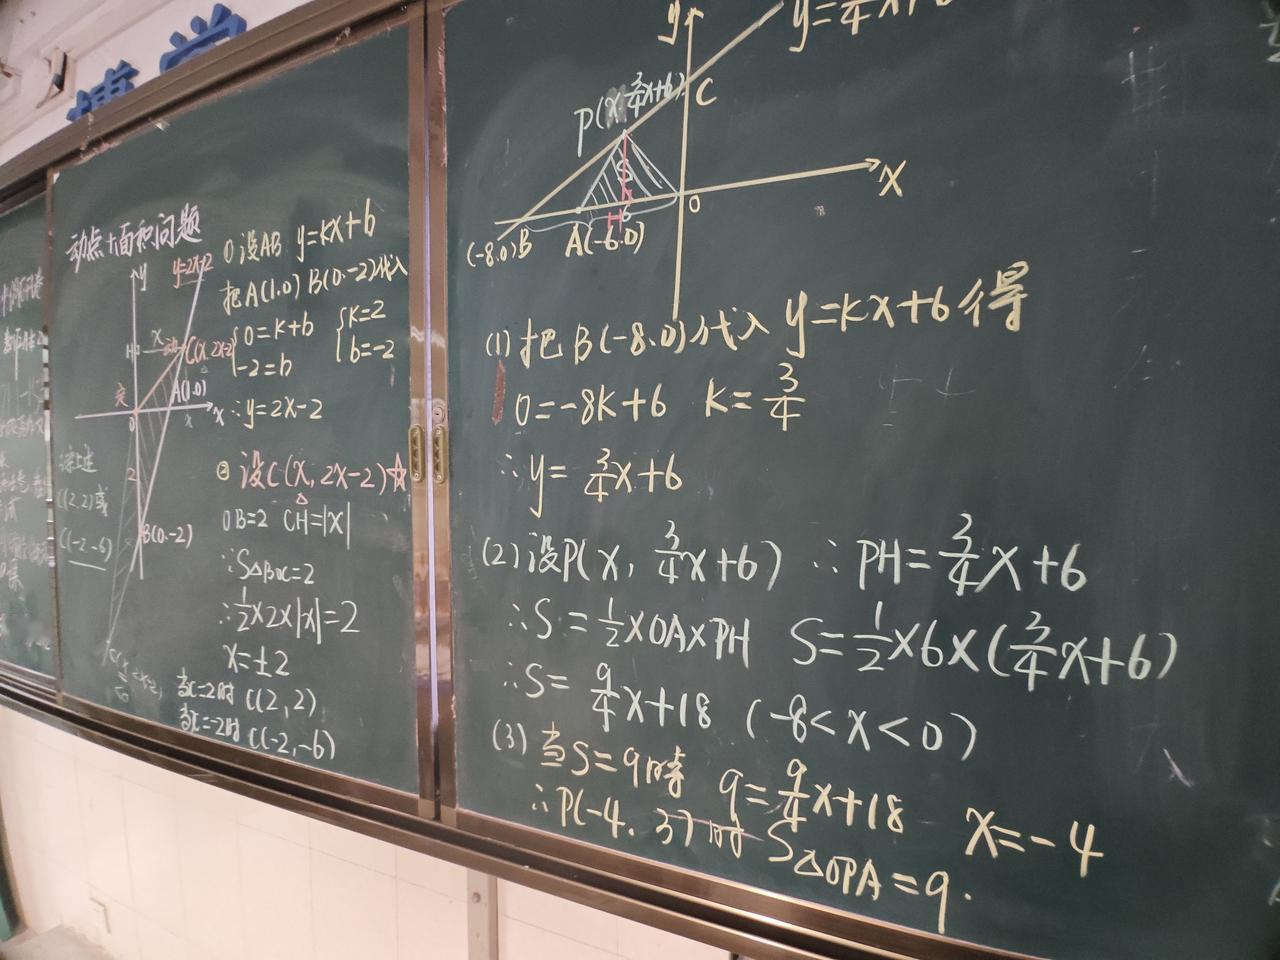 博学
动点+面积问题
y
y=2x-2
x
H
C(x,2x-2)
定
A(1,0)
0
x
x
2
综上述
C(2,2)或
(-2,-6)
B(0,-2)
①设AB y=kx+b
把A(1,0) B(0,-2)代入
{0=k+b {k=2
-2=b b=-2
∴y=2x-2
②设C(x,2x-2)☆
OB=2 CH=|x|
∵S△BOC=2
∴1/2×2×|x|=2
x=±2
当x=2时 C(2,2)
当x=-2时 C(-2,-6)
y
C
P(x,3/4x+6)
S
x
0
H
6
(-8,0)B A(-6,0)
(1)把B(-8,0)代入y=kx+6得
0=-8k+6 k=3/4
∴y=3/4x+6
(2)设P(x,3/4x+6) ∴PH=3/4x+6
∴S=1/2×OA×PH S=1/2×6×(3/4x+6)
∴S=9/4x+18 (-8<x<0)
(3)当S=9时 9=9/4x+18 x=-4
∴P(-4,3)时 S△OPA=9.